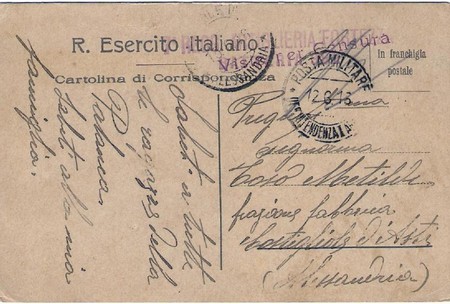 R. Esercito Italiano
Cartolina di Corrispondenza
In franchigia
postale
POSTA MILITARE
12.6.16
INTENDENZA I A
ALESSANDRIA
Censura
Saluti a tutti
le ragazze della
Palanca
Saluti alla mia
famiglia.
Pregma
Signorina
Toso Matilde
frazione fabbrica
Costigliole d'Asti
(Alessandria)